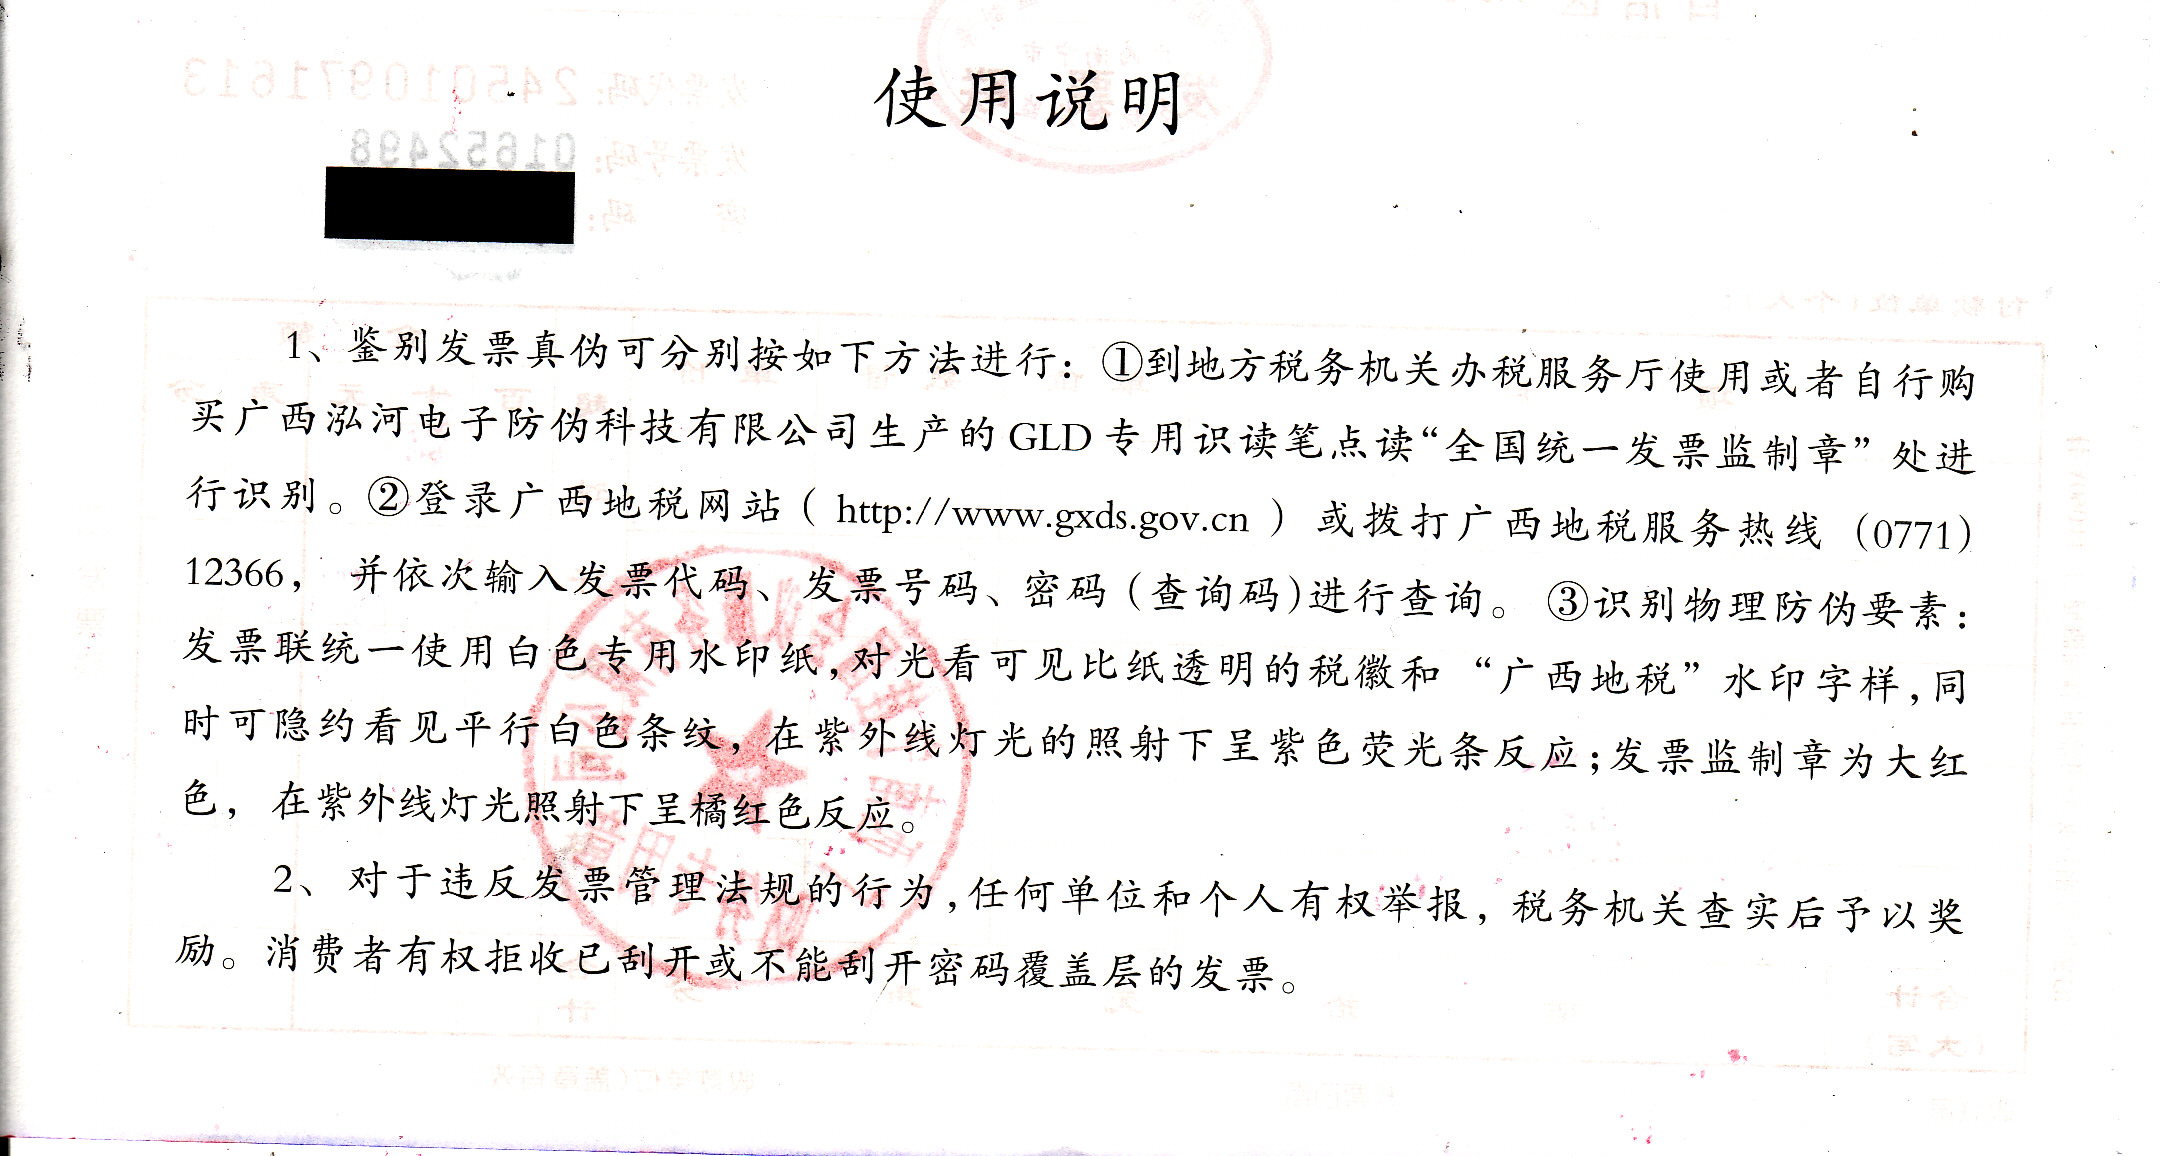 使用说明
发票代码: 245010971613
发票号码: 01652498
密 码:
1、鉴别发票真伪可分别按如下方法进行：①到地方税务机关办税服务厅使用或者自行购
买广西泓河电子防伪科技有限公司生产的GLD专用识读笔点读“全国统一发票监制章”处进
行识别。②登录广西地税网站（http://www.gxds.gov.cn）或拨打广西地税服务热线（0771）
12366，并依次输入发票代码、发票号码、密码（查询码)进行查询。③识别物理防伪要素：
发票联统一使用白色专用水印纸,对光看可见比纸透明的税徽和“广西地税”水印字样,同
时可隐约看见平行白色条纹，在紫外线灯光的照射下呈紫色荧光条反应;发票监制章为大红
色，在紫外线灯光照射下呈橘红色反应。
2、对于违反发票管理法规的行为,任何单位和个人有权举报，税务机关查实后予以奖
励。消费者有权拒收已刮开或不能刮开密码覆盖层的发票。